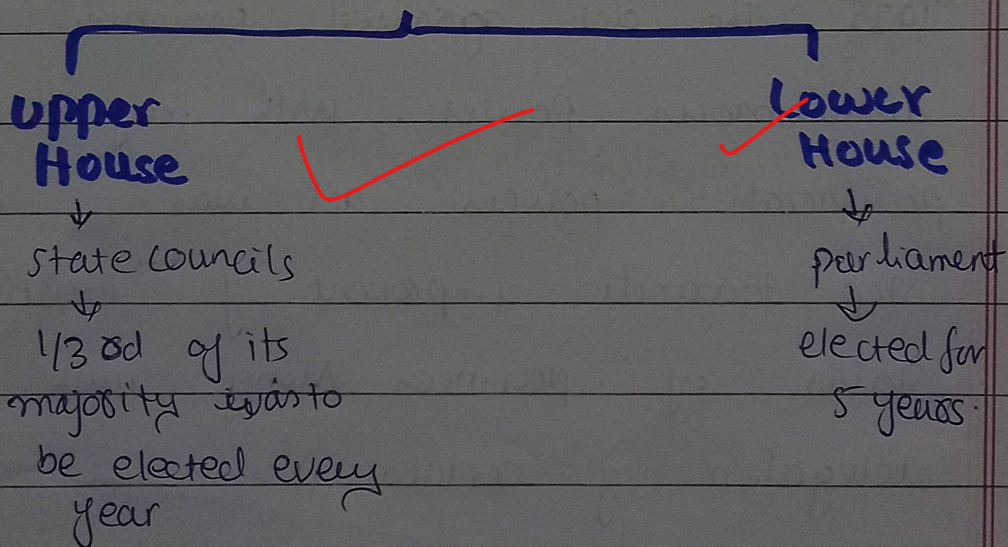 Upper
House
state councils
1/3 rd of its
majority was to
be elected every
year
Lower
House
parliament
elected for
5 years.